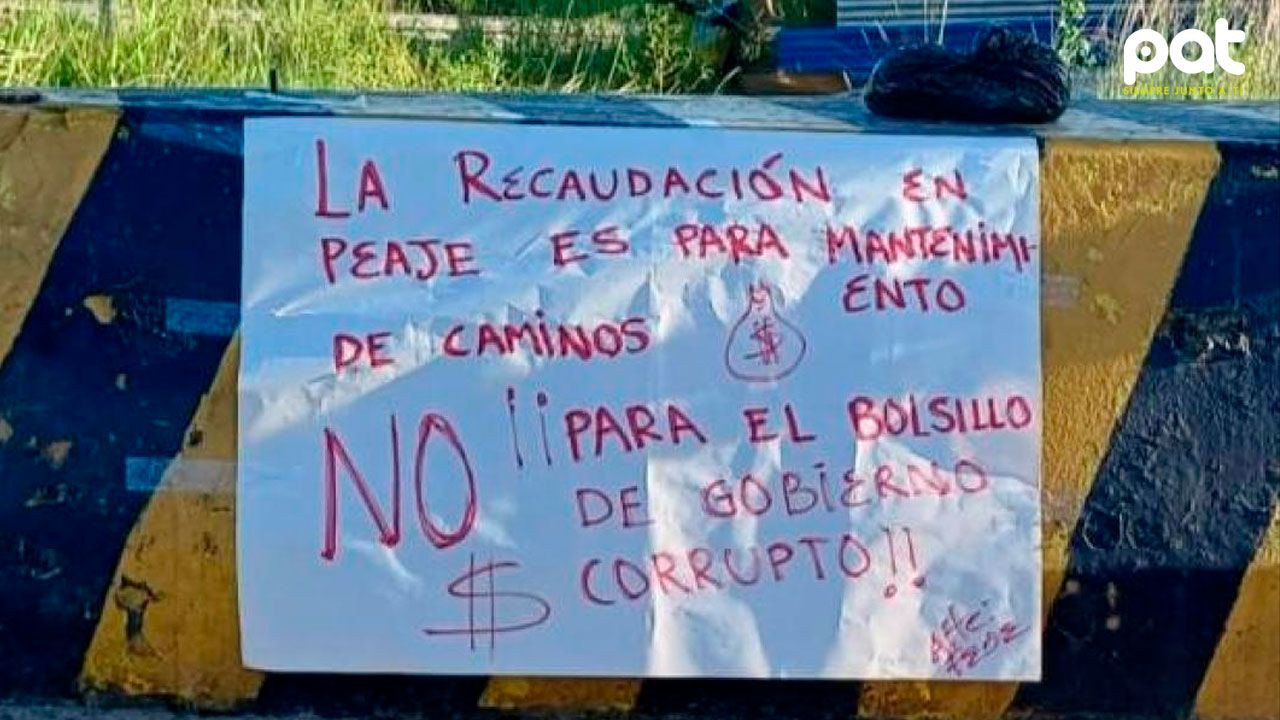 pat
SIEMPRE JUNTO A TI
LA RECAUDACIÓN EN
PEAJE ES PARA MANTENIMI-
ENTO
DE CAMINOS $
NO ¡¡PARA EL BOLSILLO
DE GOBIERNO
$ CORRUPTO!!